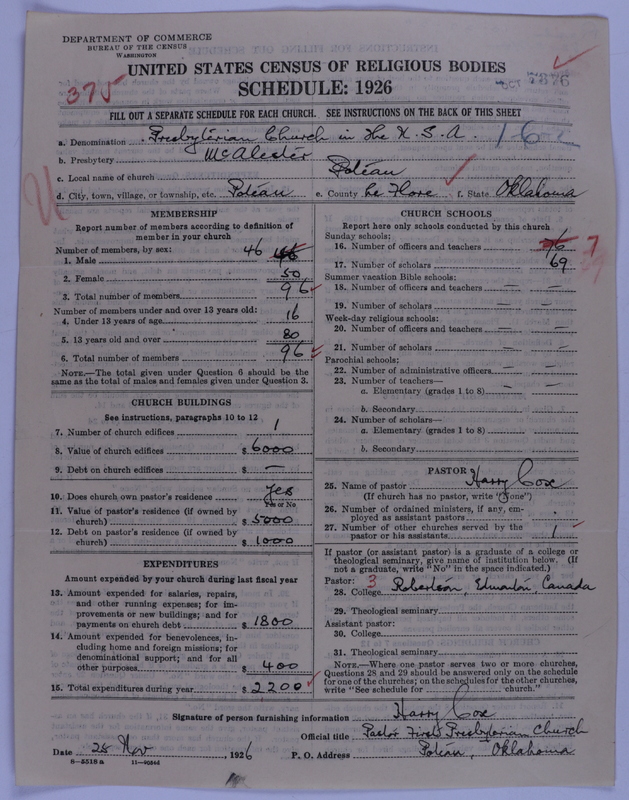 DEPARTMENT OF COMMERCE
BUREAU OF THE CENSUS
WASHINGTON
375
UNITED STATES CENSUS OF RELIGIOUS BODIES
SCHEDULE: 1926
OCT 7376
FILL OUT A SEPARATE SCHEDULE FOR EACH CHURCH. SEE INSTRUCTIONS ON THE BACK OF THIS SHEET
a. Denomination Presbyterian Church in the U.S.A.
b. Presbytery McAlester
c. Local name of church Poteau
d. City, town, village, or township, etc. Poteau e. County Le Flore f. State Oklahoma
MEMBERSHIP
Report number of members according to definition of
member in your church
Number of members, by sex:
1. Male 46
2. Female 50
3. Total number of members 96
Number of members under and over 13 years old:
4. Under 13 years of age 16
5. 13 years old and over 80
6. Total number of members 96
NOTE.—The total given under Question 6 should be
same as the total of males and females given under Question 3.
CHURCH BUILDINGS
See instructions, paragraphs 10 to 12
7. Number of church edifices 1
8. Value of church edifices $ 6000
9. Debt on church edifices $ —
10. Does church own pastor's residence Yes
Yes or No
11. Value of pastor's residence (if owned by
church) $ 5000
12. Debt on pastor's residence (if owned by
church) $ 1000
EXPENDITURES
Amount expended by your church during last fiscal year
13. Amount expended for salaries, repairs,
and other running expenses; for im-
provements or new buildings; and for
payments on church debt $ 1800
14. Amount expended for benevolences, in-
cluding home and foreign missions; for
denominational support; and for all
other purposes $ 400
15. Total expenditures during year $ 2200
CHURCH SCHOOLS
Report here only schools conducted by this church
Sunday schools:
16. Number of officers and teachers 7
17. Number of scholars 69
Summer vacation Bible schools:
18. Number of officers and teachers — —
19. Number of scholars — —
Week-day religious schools:
20. Number of officers and teachers — —
21. Number of scholars — —
Parochial schools:
22. Number of administrative officers — —
23. Number of teachers—
a. Elementary (grades 1 to 8) — —
b. Secondary
24. Number of scholars—
a. Elementary (grades 1 to 8)
b. Secondary
PASTOR
25. Name of pastor Harry Cox
(If church has no pastor, write "None")
26. Number of ordained ministers, if any, em-
ployed as assistant pastors
27. Number of other churches served by the
pastor or his assistants 1
If pastor (or assistant pastor) is a graduate of a college or
theological seminary, give name of institution below. (If
not a graduate, write "No" in the space indicated.)
Pastor: 3
28. College Robertson, Edmonton, Canada
29. Theological seminary
Assistant pastor:
30. College
31. Theological seminary
NOTE.—Where one pastor serves two or more churches,
Questions 28 and 29 should be answered only on the schedule
for one of the churches; on the schedules for the other churches,
write "See schedule for church."
Signature of person furnishing information Harry Cox
Official title Pastor First Presbyterian Church
Date 28 Nov , 1926 P. O. Address Poteau, Oklahoma
8—5518 a